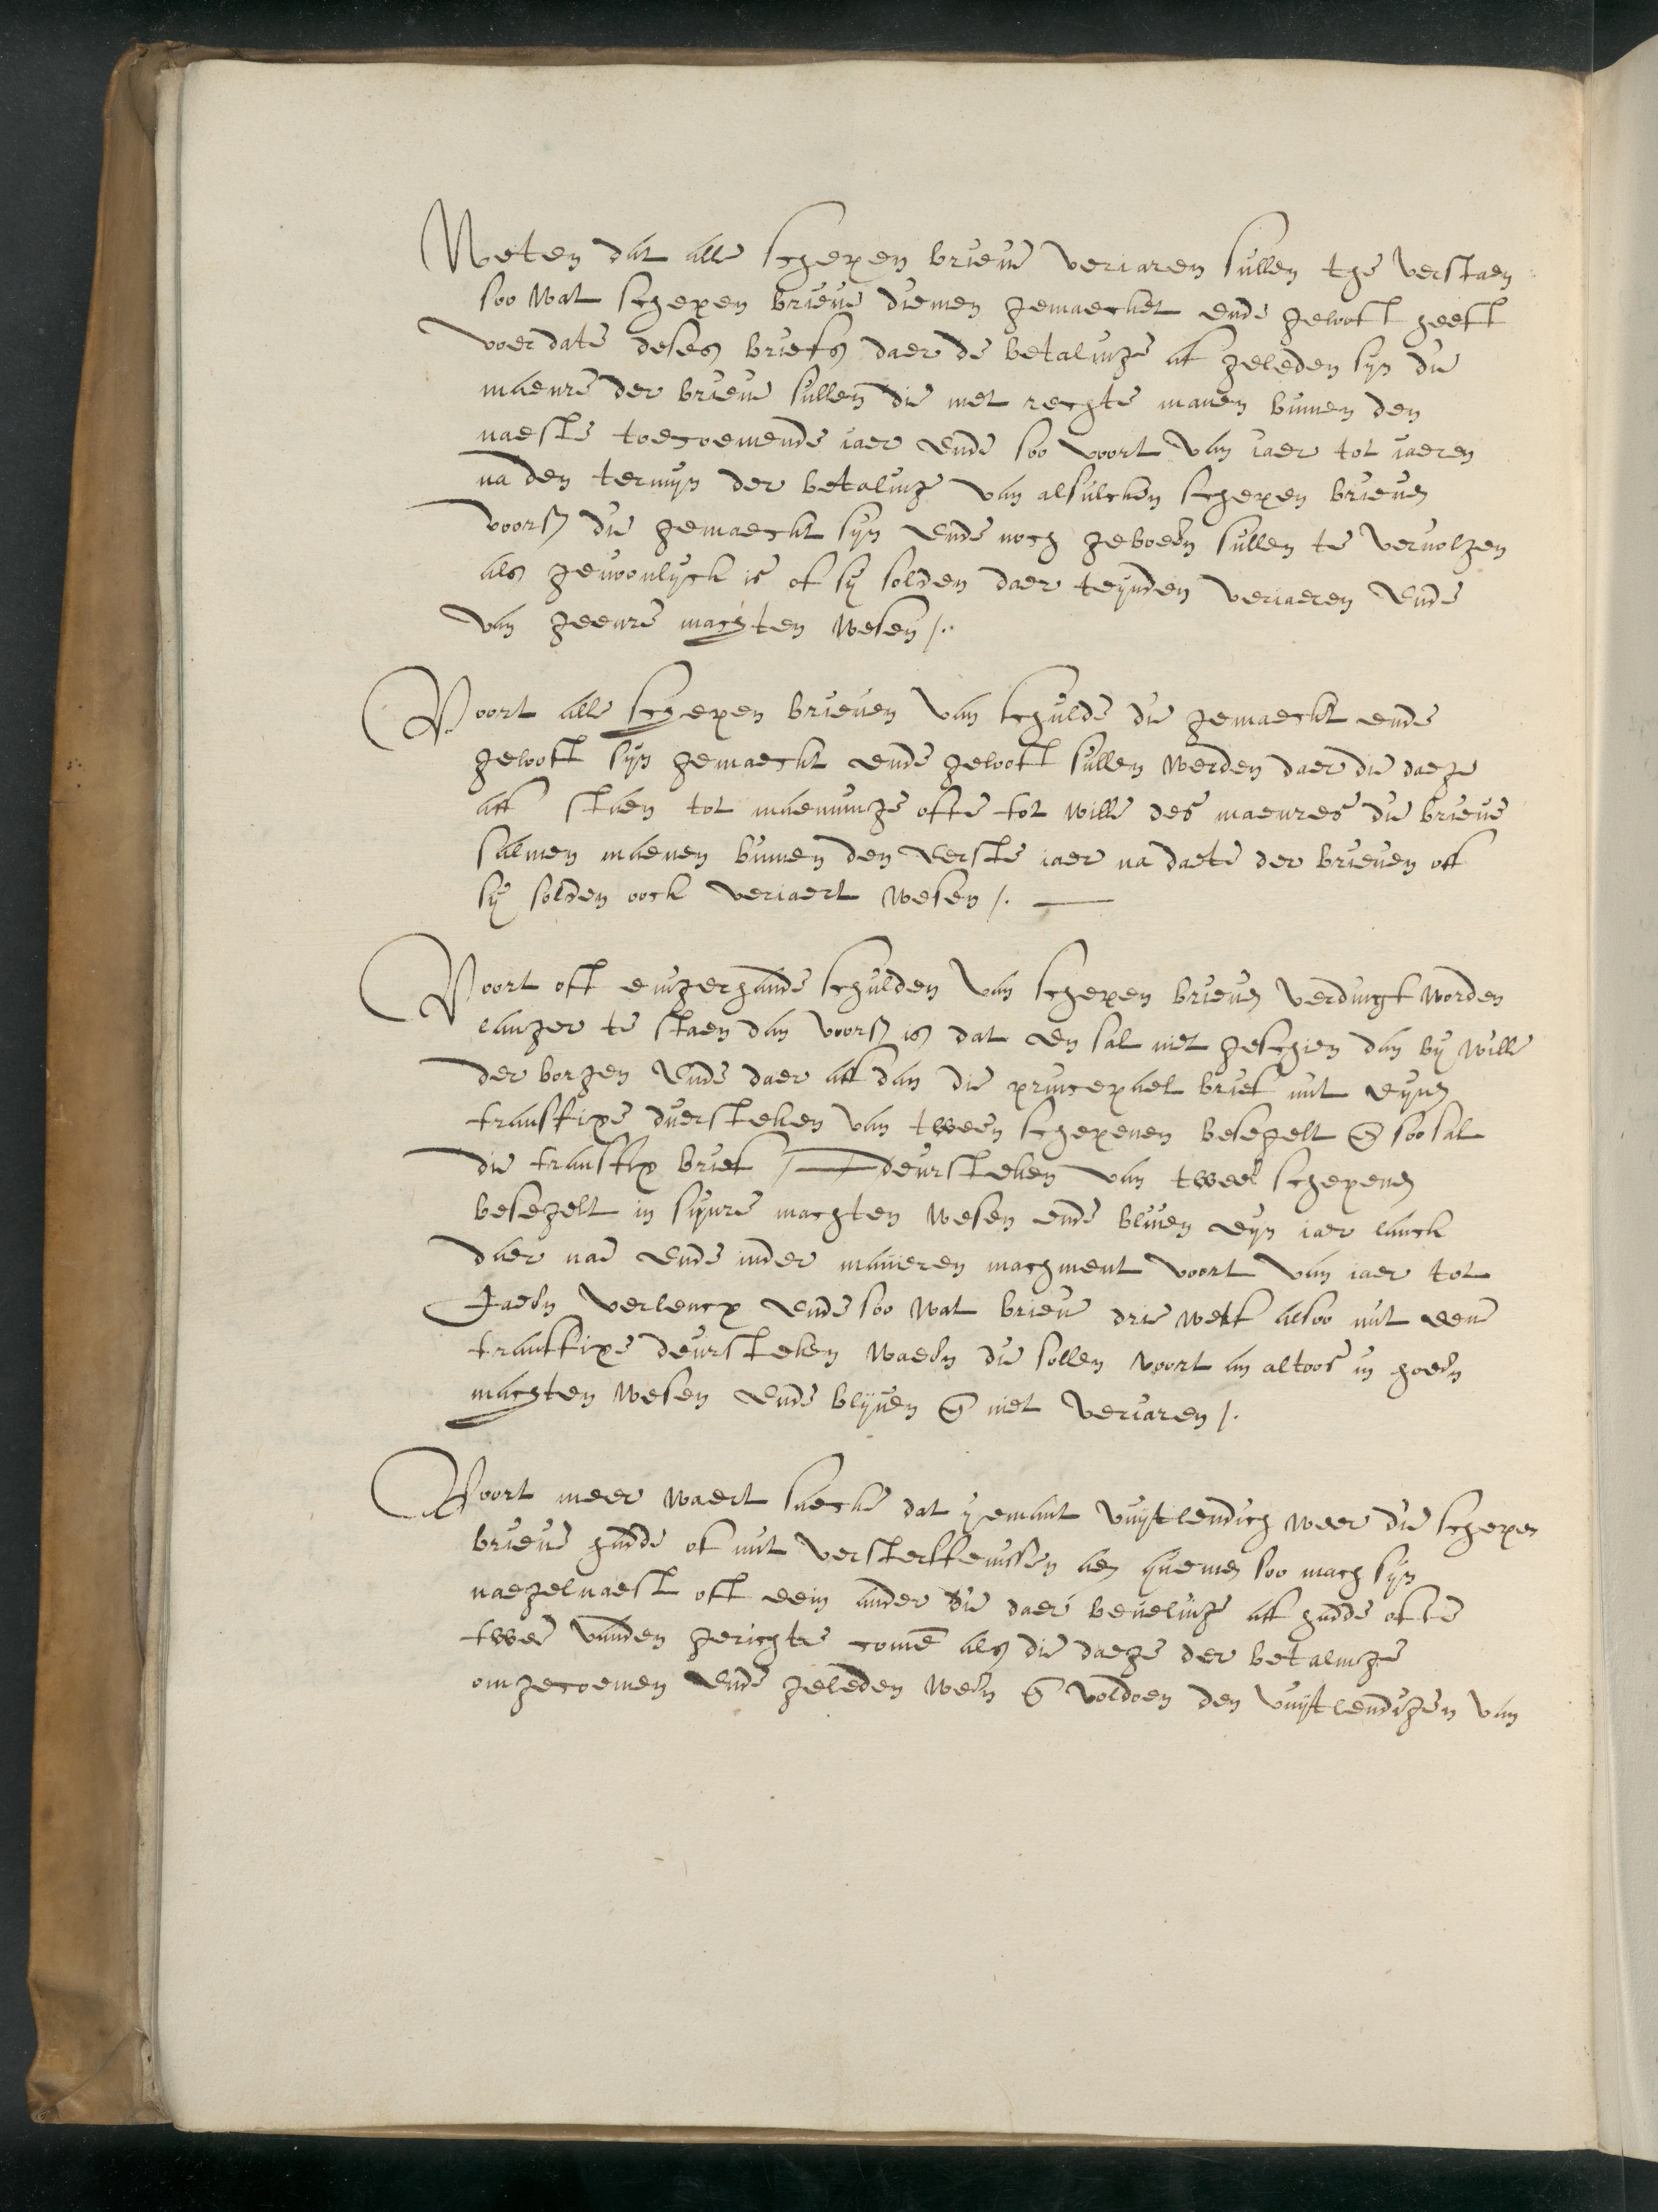 Weten dat alle schepen brieue veriaren sullen the verstaen
soo wat schepen brieue diemen gemaecket ende geloeft heeft
voer date deses briefs daer de betalinge af geleden syn die
maenre der brieue sullen die met rechte manen binnen den
naeste toecoemende iaer ende soo voort van iaer tot iaeren
na den termyn der betalinge van alsulcken schepen brieuen
voors die gemaeckt syn ende noch geboeren sullen te veruolgen
als gewonlyck is of sy solden daer teynden veriaeren ende
van geenre machten wesen /.
Voort alle schepen brieuen van schulde die gemaeckt ende
geloeft syn gemaeckt ende geloeft sullen werden daer die daege
aff staen tot maeninge ofte tot wille des maenres die brieue
salmen maenen binnen den eerste iaer na daete der brieuen off
sy solden oock veriaert wesen /.
Voort oft eingerhande schulden van schepen brieuen verdingt worden
langer te staen dan voors is dat en sal niet geschien dan by wille
der borgen ende daer aff dan die princepael brief mit eynen
transfixe duersteken van tween schepenen besegelt en soo sal
die transfix brief deursteken van tweel schepenen
besegelt in synre machten wesen ende bliuen eyn iaer lanck
daer nae ende inder manieren machment voort van iaer tot
Jaern verlencx ende soo wat brieue drie werf alsoo mit een
tranffixe deursteken waern die sollen voort an altoos in hoern
machten wesen ende blyuen en niet veriaren /.
Voort meer waert saecke dat yemant vuytlendich weer die schepen
brieue hadde of mit versterffenissen aen quemen soo mach syn
naegelnaest oft een ander die daer beuelinge aff hadde ofte
twee vanden gerichte comen als die daege der betalinge
omgecoemen ende geleden wern en voldoen den vuytlendigen van